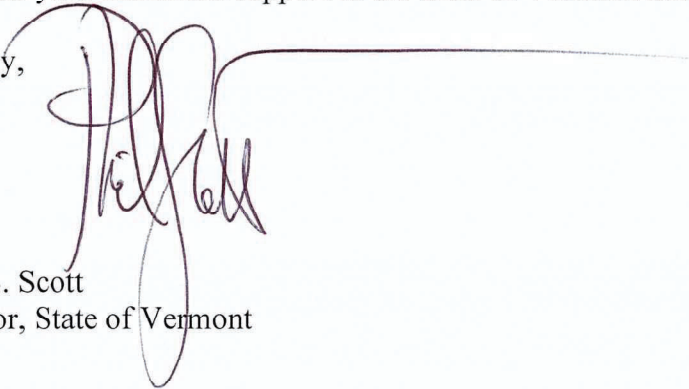 y,
Phil Scott
. Scott
or, State of Vermont